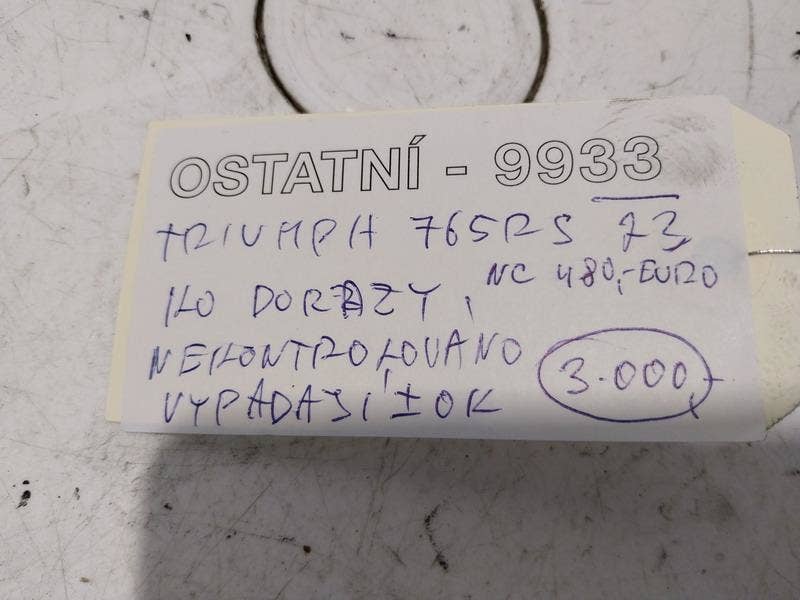 OSTATNÍ - 9933
TRIUMPH 765RS 23
NC 480,- EURO
KO DORAZY,
NEKONTROLOVÁNO
VYPADAJÍ ± OK
3.000,-